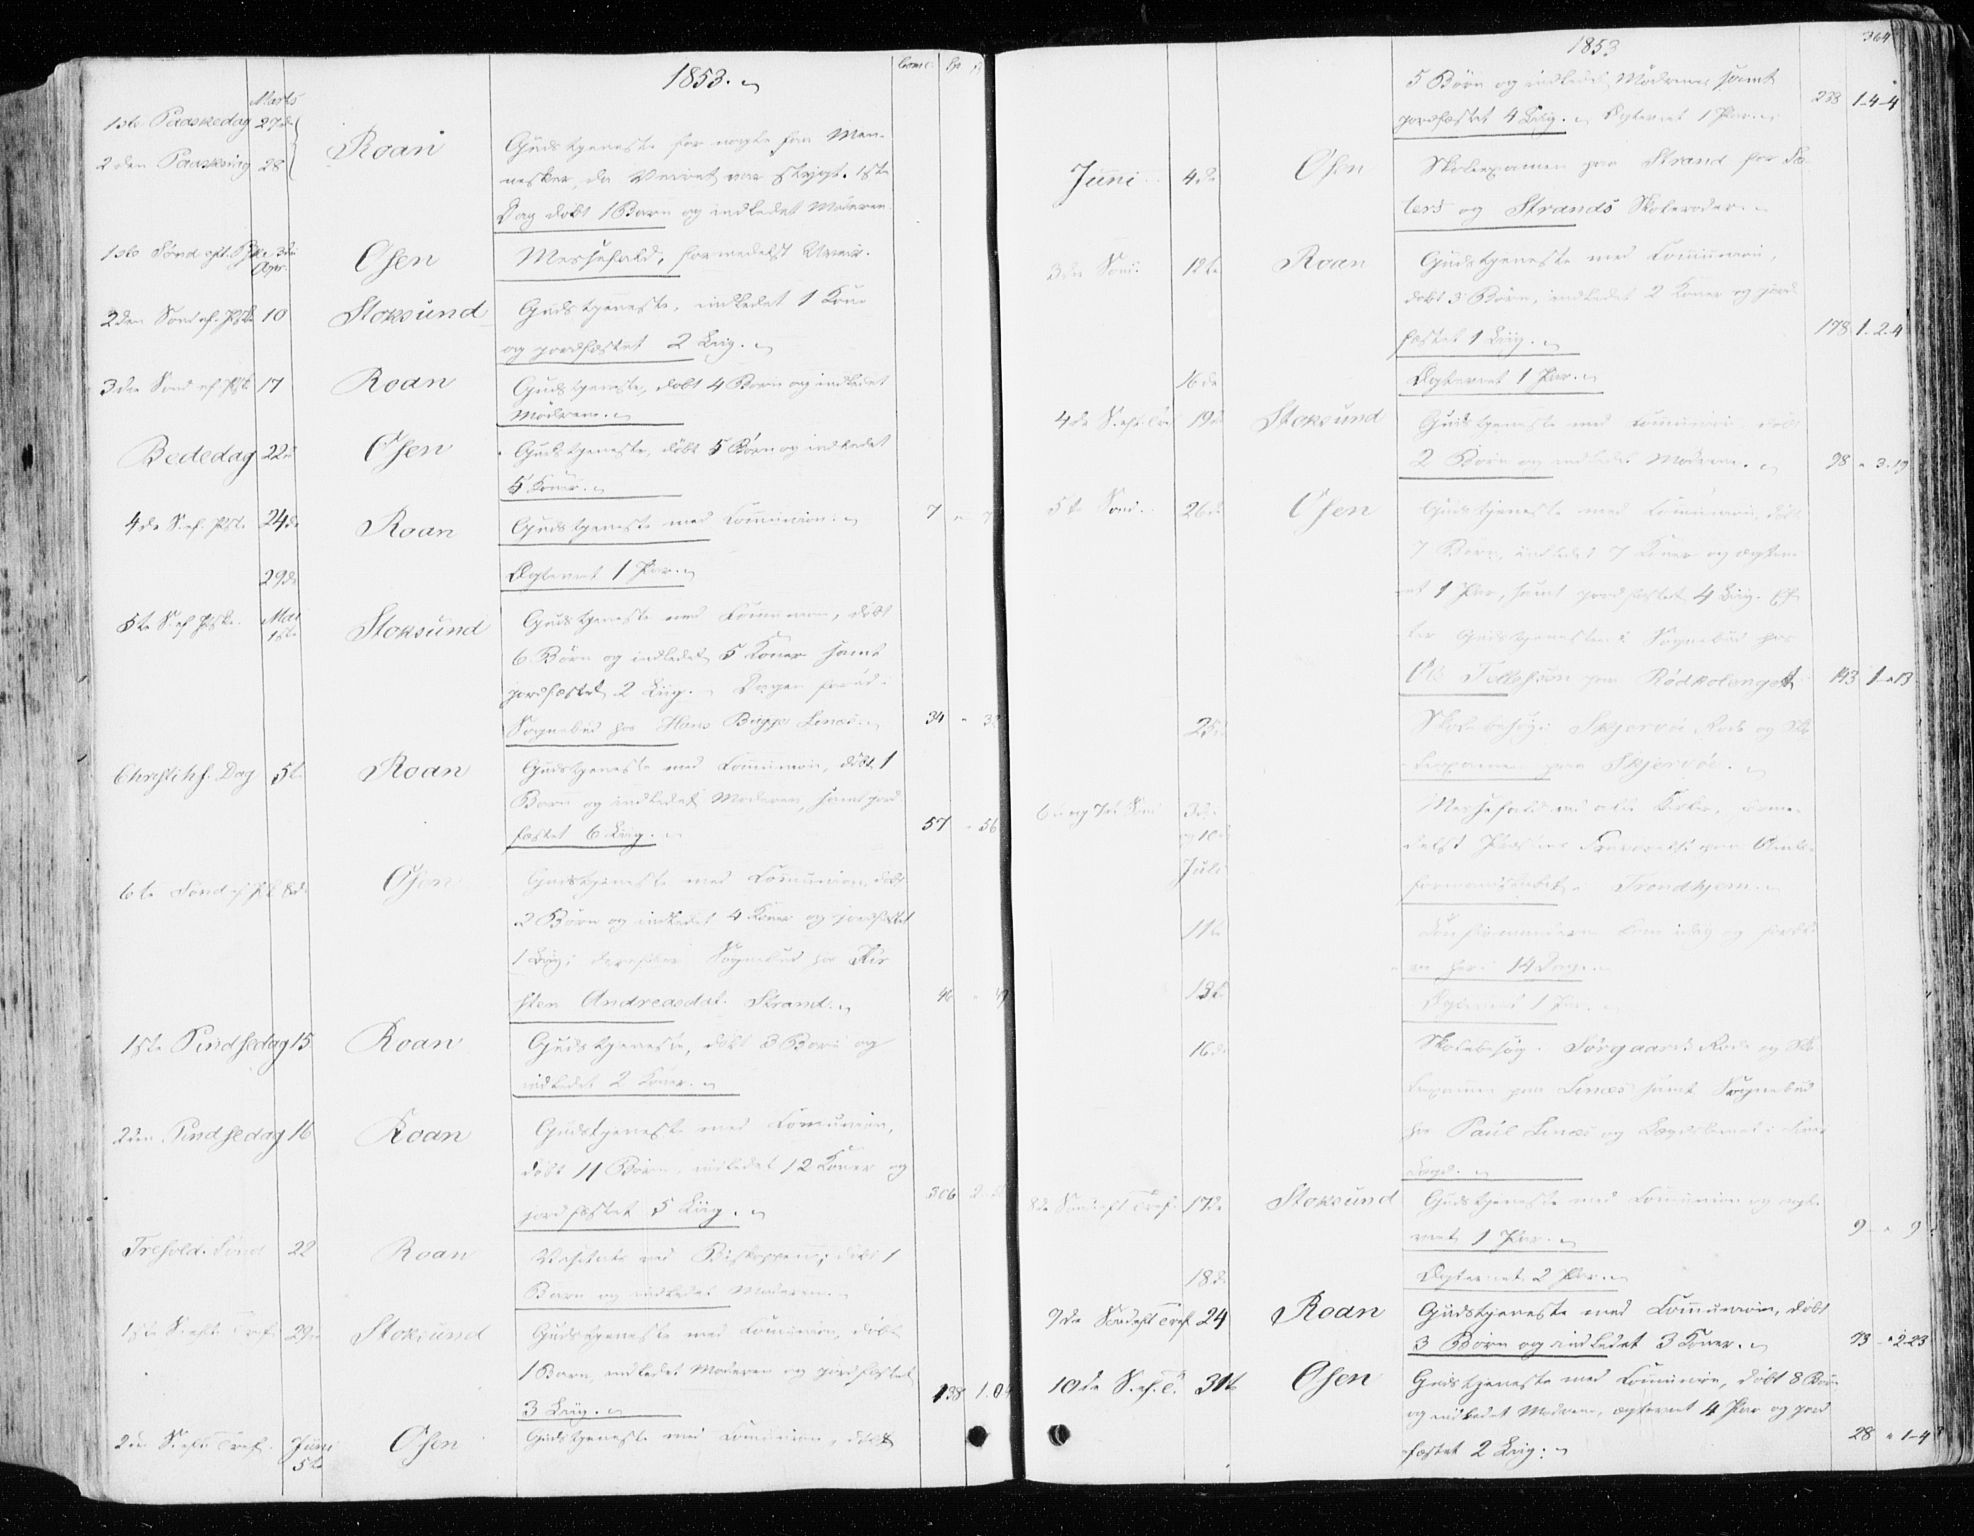 1853.
Comc. Sp.
Marts
1ste Paaskedag 27de
2den Paaskedag 28
Roan
Gudstjeneste for nogle faa Men-
nesker, da Veiret var stygt. 1ste
Dag døbt 1 Barn og indledet Moderen.
1ste Sønd. eft. Pske. 3die Apr.
Osen
Messefald, formedelst Uveir.
2den Sønd. ef. Pske 10
Stoksund
Gudstjeneste, indledet 1 Kone
og jordfæstet 2 Liig.
3die Sønd. ef. Pske 17
Roan
Gudstjeneste, døbt 4 Børn og indledet
Mødrene.
Bededag 22de
Osen
Gudstjeneste, døbt 5 Børn og indledet
5 Koner.
4de S. ef. Pske. 24de
Roan
Gudstjeneste med Communion. 7 " 7
29de
Ægteviet 1 Par.
5te S. ef. Pske. Mai 1ste
Stoksund
Gudstjeneste med Communion, døbt
6 Børn og indledet 5 Koner samt
jordfæstet 2 Liig. Dagen forud i
Sognebud hos Hans Linæs. 34
Christi hf. Dag 5te
Roan
Gudstjeneste med Communion, døbt 1
Barn og indledet Moderen, samt jord-
fæstet 6 Liig. 57 " 56
6te Sønd. ef. Pske 8de
Osen
Gudstjeneste med Communion, døbt
2 Børn og indledet 4 Koner og jordfæstet
1 Liig; derefter Sognebud hos Kir-
sten Andreasdat. Strand.
1ste Pindsedag 15
Roan
Gudstjeneste, døbt 3 Børn og
indledet 2 Koner.
2den Pindsedag 16
Roan
Gudstjeneste med Communion,
døbt 11 Børn, indledet 12 Koner og
jordfæstet 5 Liig.
Trefold. Sønd. 22
Roan
Visitats ved Biskoppen; døbt 1
Barn og indledet Moderen.
1ste S. eft. Tref. 29de
Stoksund
Gudstjeneste med Communion, døbt
1 Barn, indledet Moderen og jordfæstet
3 Liig. 138
2den S. eft. Tref. Juni 5te
Osen
Gudstjeneste med Communion, døbt
1853
364
5 Børn og indledet Mødrene samt
jordfæstet 4 Liig. Ægteviet 1 Par. 238 1-4-4
Juni 4de
Osen
Skoleexamen paa Strand for Sæ-
ters og Strands Skoleroder.
3die Sønd. 12te
Roan
Gudstjeneste med Communion,
døbt 3 Børn, indledet 2 Koner og jord-
fæstet 1 Liig. 178 1-2-4
16de
Ægteviet 1 Par.
4de S. eft. Tref. 19de
Stoksund
Gudstjeneste med Communion, døbt
2 Børn og indledet Mødrene. 98 " 3-19
5te Sønd. 26de
Osen
Gudstjeneste med Communion, døbt
7 Børn, indledet 7 Koner og ægtevi-
et 1 Par, samt jordfæstet 4 Liig. Ef-
ter Gudstjenesten i Sognebud hos
Tellefsen paa Rødkolenget 143
25de
Skolebesøg i Skjervøe Rode og Sko-
leexamen paa Skjervøe.
6te og 7de Sønd. 3die og 10de Juli
Messefald ved alle Kirker, forme-
delst Præstens Nærværelse paa Amts-
formandskabet i Trondhjem.
11te
Confirmanderne kom idag og
her i 14 Dage.
Ægteviet 1 Par.
16de
Skolebesøg i Sørgaards Rode og Sko-
leexamen paa Linæs samt Sognebud
hos Paul Linæs og
8de Sønd. eft. Tref. 17de
Stoksund
Gudstjeneste med Communion og ægte-
viet 1 Par. 9 " 9
18de
Ægteviet 2 Par.
9de Sønd. eft. Tref. 24
Roan
Gudstjeneste med Communion, døbt
3 Børn og indledet 3 Koner. 73 " 2-23
10de S. ef. T. 31te
Osen
Gudstjeneste med Communion, døbt 8 Børn
og indledet Mødrene, ægteviet 4 Par og jord-
fæstet 2 Liig. 28 " 1-4